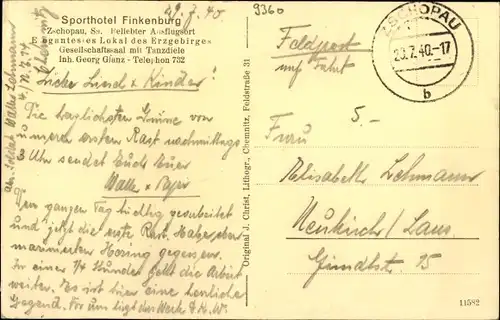 Sporthotel Finkenburg
Zschopau, Sa. Beliebter Ausflugsort
Elegantestes Lokal des Erzgebirges
Gesellschaftssaal mit Tanzdiele
Inh. Georg Glanz - Telephon 732
29.7.40
Liebe Liesel & Kinder!
Die herzlichsten Grüsse von
unserer ersten Rast nachmittags
3 Uhr sendet Euch Euer
Walter & Papi
Den ganzen Tag tüchtig gearbeitet
und jetzt die erste Rast. Habe eben
marinierten Hering gegessen.
In einer 1/4 Stunde geht die Arbeit
weiter. Es ist hier eine herrliche
Gegend. Vor uns liegt das Werk D.K.W.
Abs. Soldat Walter Lehmann
Original J. Christ, Lithogr., Chemnitz, Feldstraße 31
9360
Feldpost
ZSCHOPAU
29.7.40.-17
b
5.-
Frau
Elisabeth Lehmann
Neukirch / Laus.
15
11582